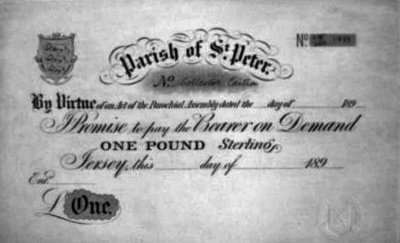 Parish of St. Peter.
No.
No.
By Virtue of an Act of the Parochial Assembly dated the day of 189
I Promise to pay the Bearer on Demand
ONE POUND Sterling,
Jersey, this day of 189
Ent.
£ One.